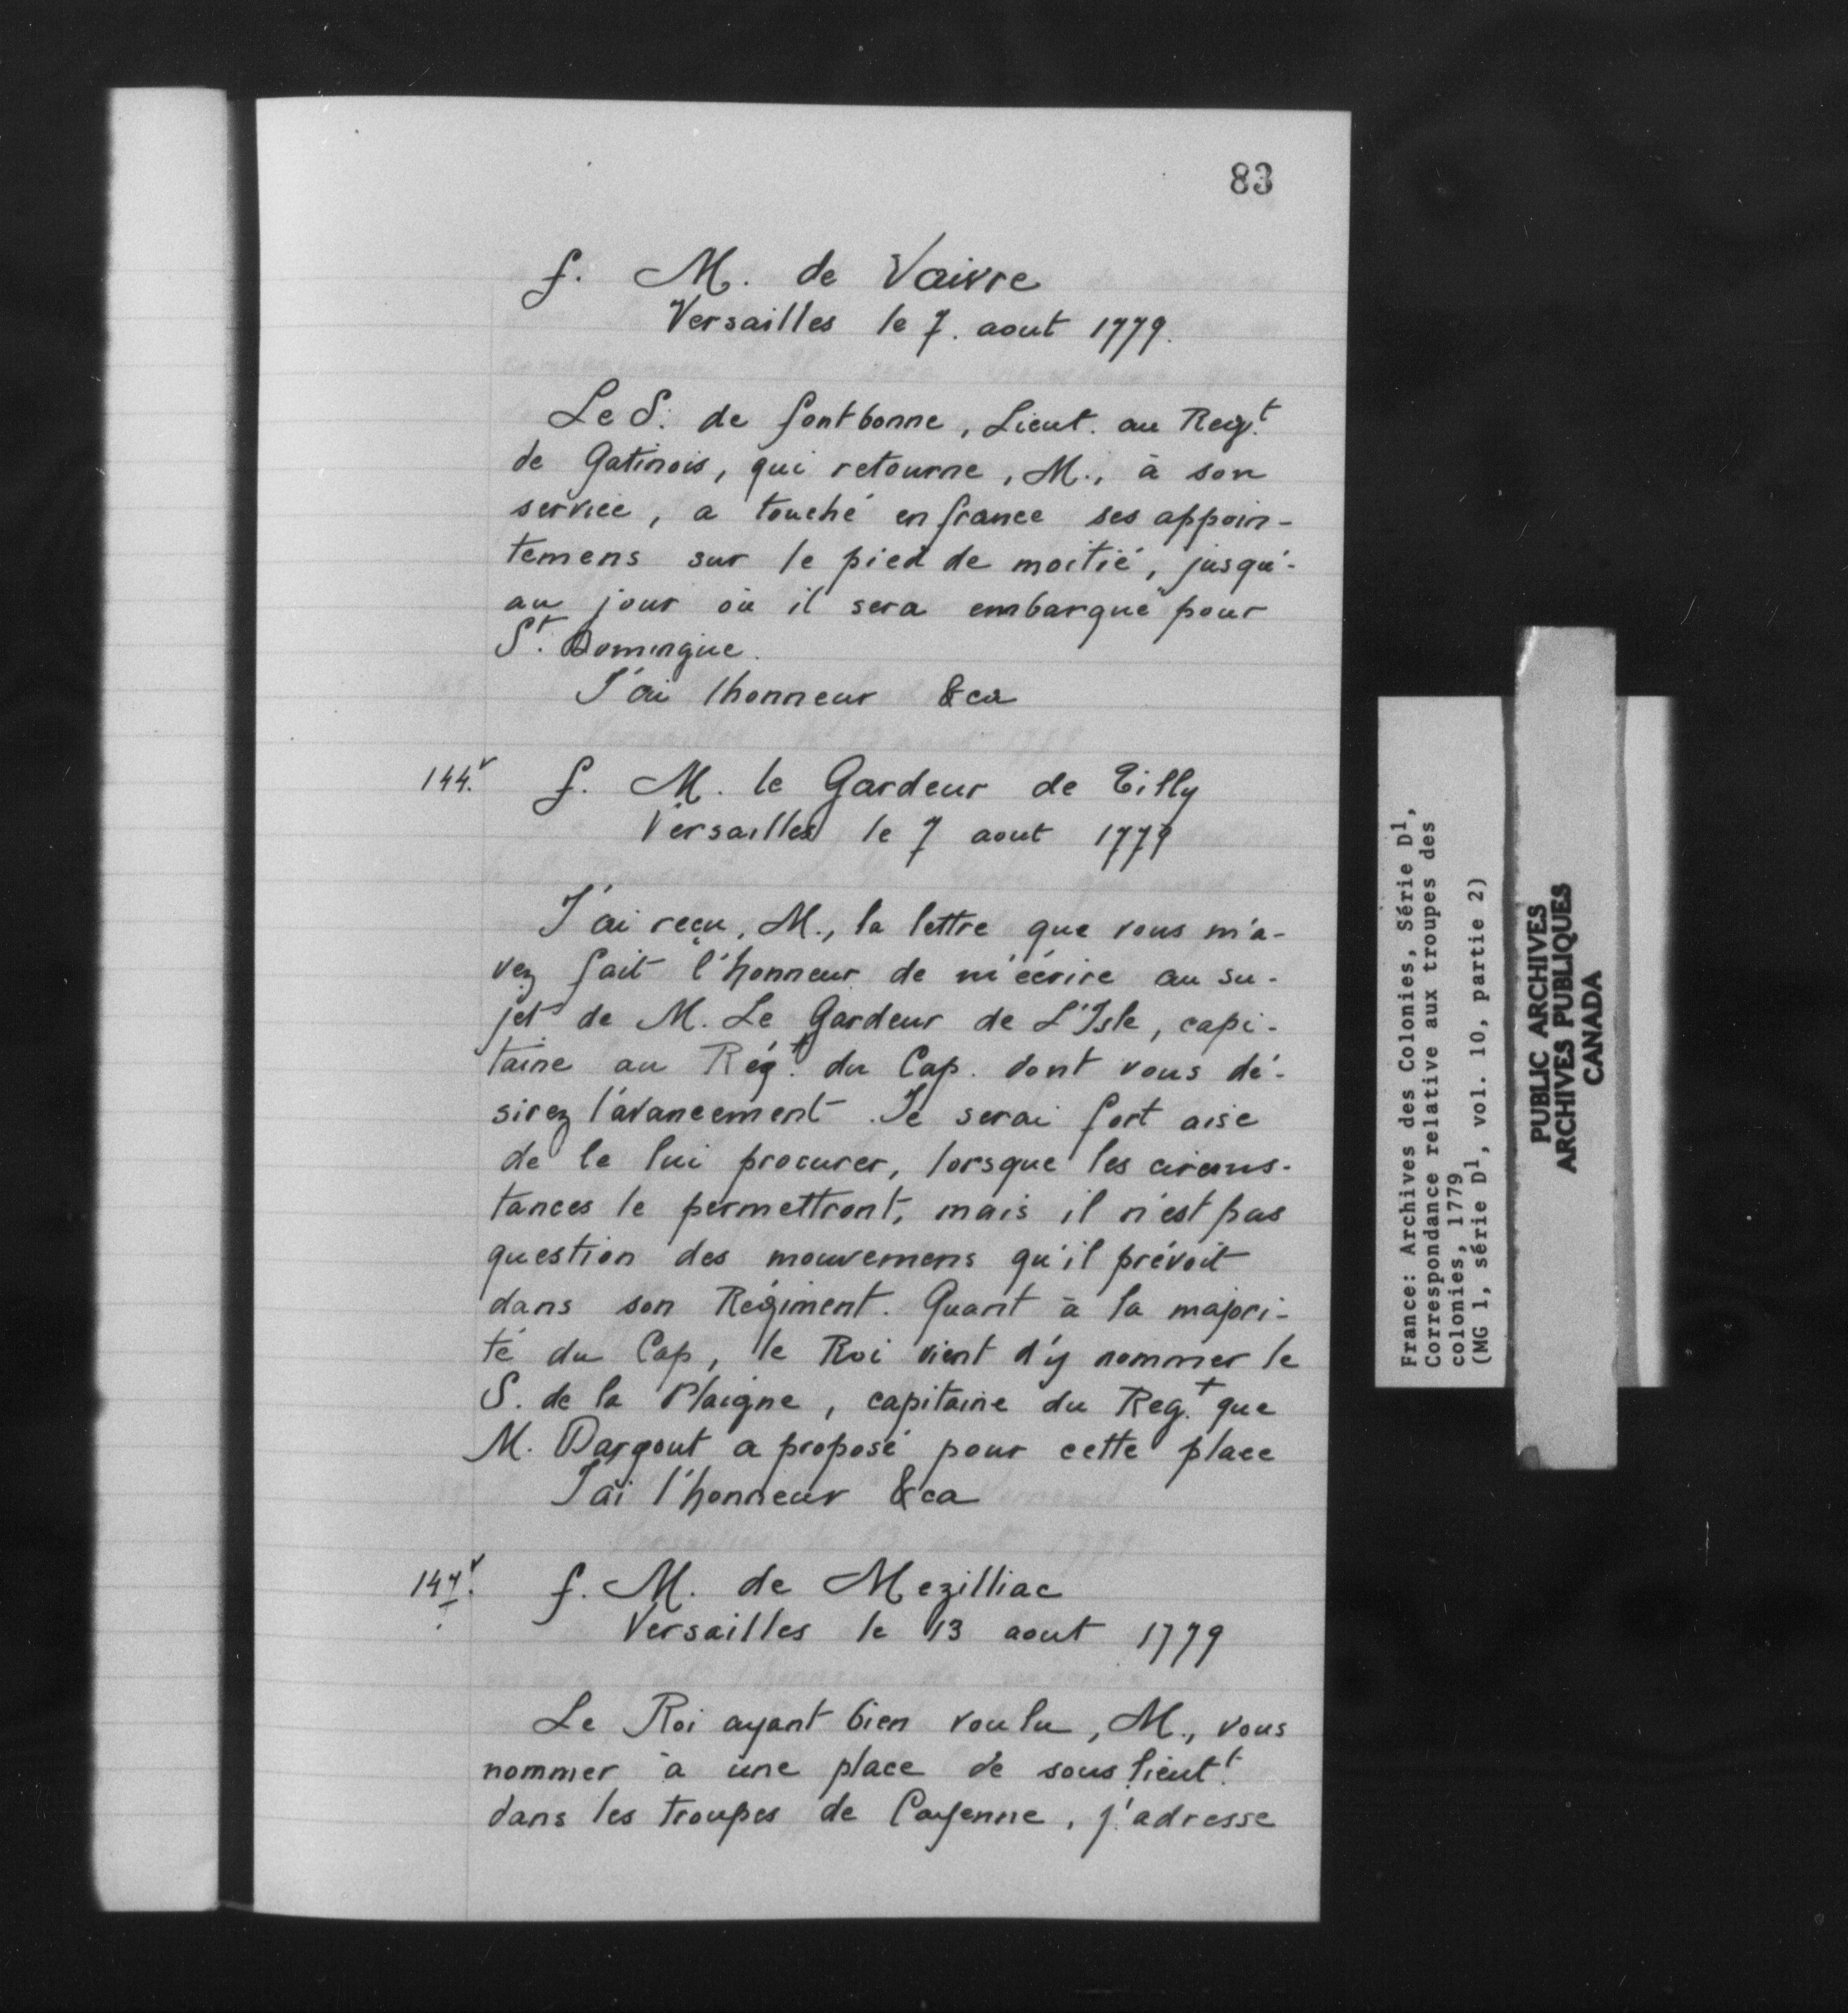 83
f. M. de Vaivre
Versailles le 7. aout 1779.
Le S. de fontbonne, Lieut. au Regt.
de Gatinois, qui retourne, M., à son
service, a touché en france ses appoin-
temens sur le pied de moitié, jusqu'-
au jour où il sera embarqué pour
St. Domingue.
J'ai lhonneur &ca
144.v f. M. le Gardeur de Tilly
Versailles le 7 aout 1779
J'ai reçu, M., la lettre que vous m'a-
vez fait l'honneur de m'écrire au su-
jet de M. Le Gardeur de L'Isle, capi-
taine au Régt. du Cap. dont vous dé-
sirez l'avancement. Je serai fort aise
de le lui procurer, lorsque les circons-
tances le permettront, mais il n'est pas
question des mouvemens qu'il prévoit
dans son Régiment. Quant à la majori-
té du Cap, le Roi vient d'y nommer le
S. de la Plaigne, capitaine du Regt. que
M. Dargout a proposé pour cette place
J'ai l'honneur &ca
147.v f. M. de Mezilliac
Versailles le 13 aout 1779
Le Roi ayant bien voulu, M., vous
nommer à une place de sous lieutt.
dans les troupes de Cayenne, j'adresse
France: Archives des Colonies, Série D1,
Correspondance relative aux troupes des
colonies, 1779
(MG 1, série D1, vol. 10, partie 2)
PUBLIC ARCHIVES
ARCHIVES PUBLIQUES
CANADA